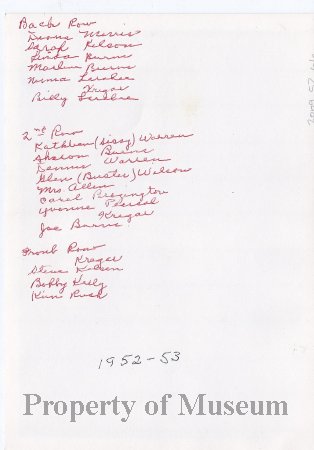 Back Row
Donna Morris
Sarah Kelson
Linda Burns
Marlin Burns
Norma
Kregar
Billy
2nd Row
Kathleen (Sissy) Warren
Sharon Burns
Dennis Warren
Glen (Buster) Wilson
Mrs Allen
Carol
Yvonne
Kregar
Joe Burns
Front Row
Kregar
Steve Kelson
Bobby Kelly
Kim Rusk
1952-53
Property of Museum